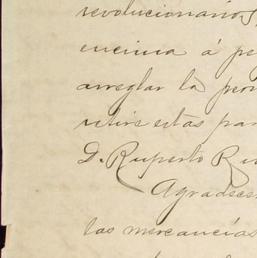 revolucionarios,
encima á pe
arreglar la pron
retire estas par
D. Ruperto Ru
Agradec
las mercancías